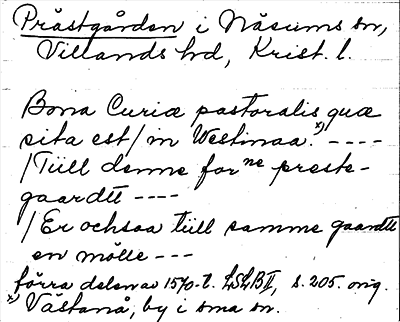 Prästgården i Näsums sn,
Villands hd, Krist. l.
Bona Curiæ pastoralis quæ
sita est / in Westinaa. x) ----
/ Tiill denne for ne preste-
gaardtt ----
/ Er ochsaa tiill samme gaardtt
en mölle ---
förra delen av 1570-t. LSLB II, s. 205. orig.
x) Västanå, by i sma sn.